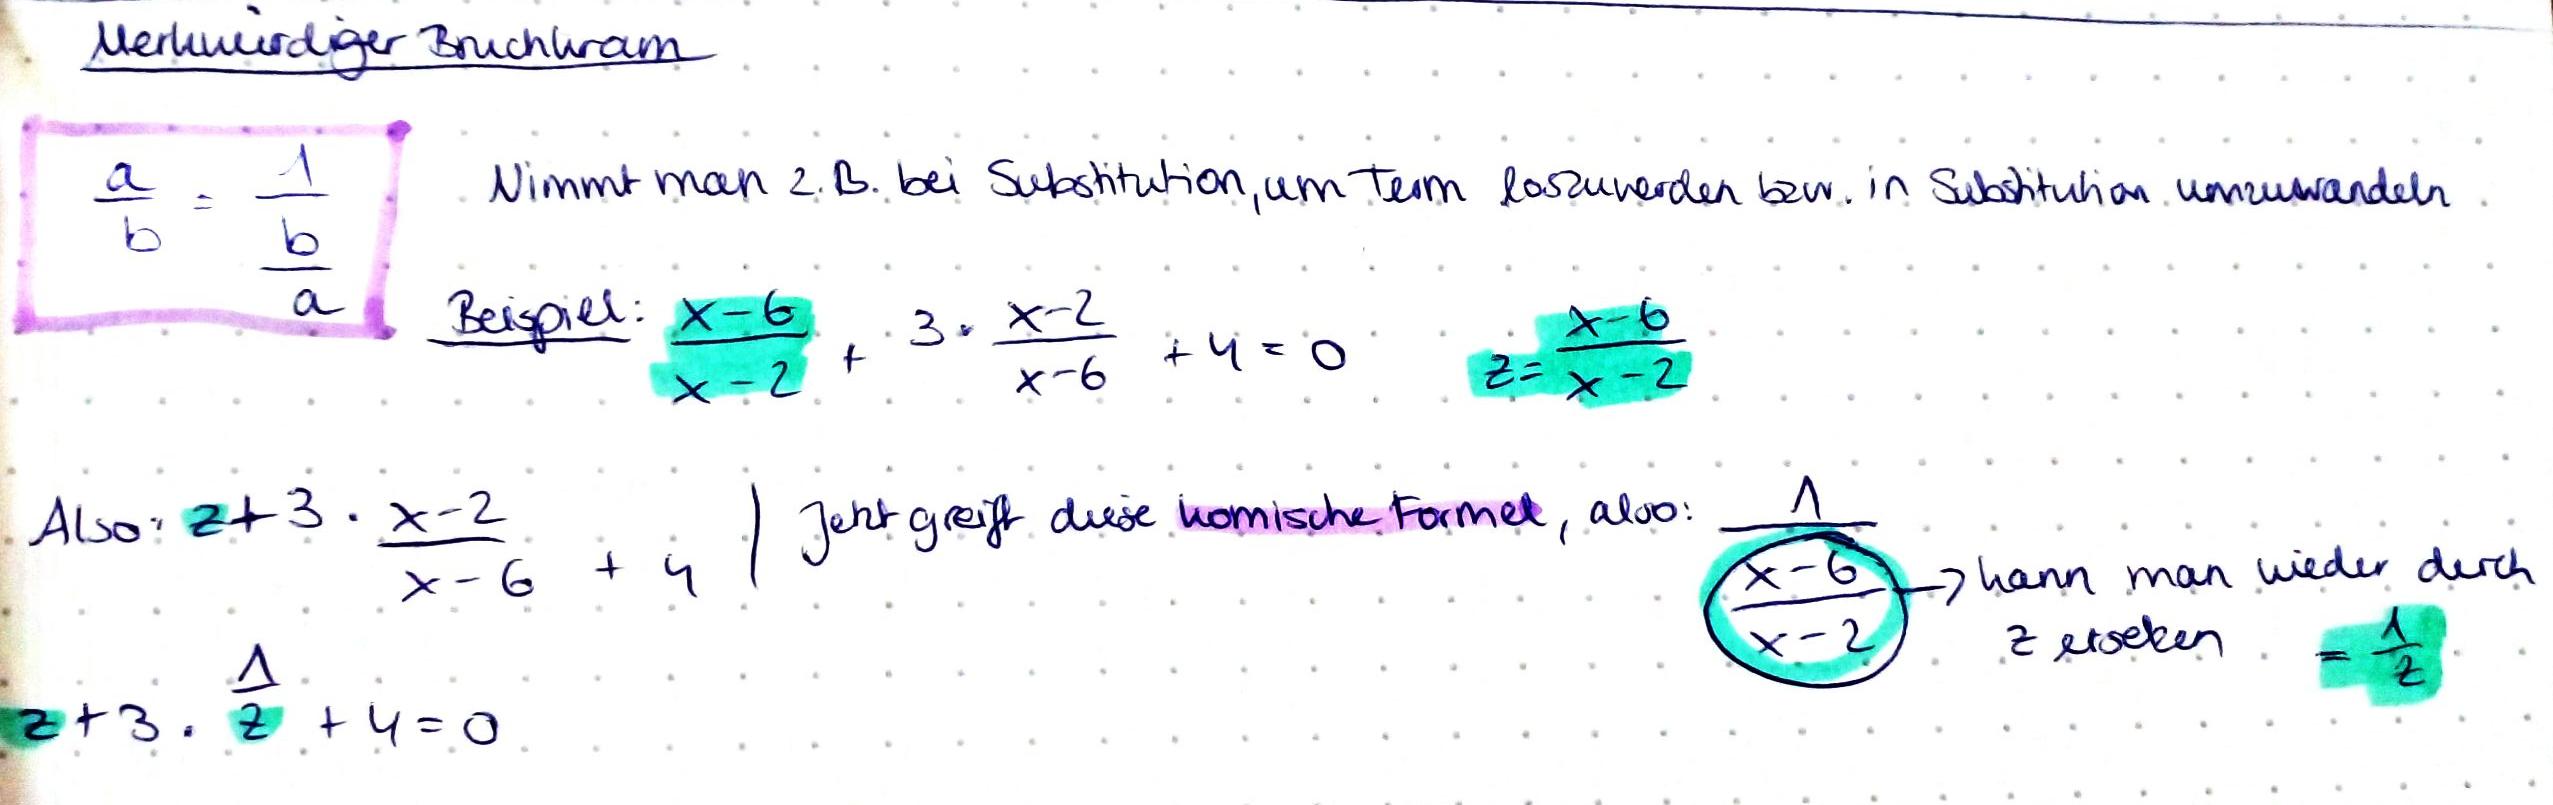 Merkwürdiger Bruchkram
a/b = 1/(b/a)
Nimmt man z.B. bei Substitution, um Term loszuwerden bzw. in Substitution umzuwandeln.
Beispiel: (x-6)/(x-2) + 3 · (x-2)/(x-6) + 4 = 0 z = (x-6)/(x-2)
Also: z + 3 · (x-2)/(x-6) + 4 | Jetzt greift diese komische Formel, also: 1/((x-6)/(x-2)) → kann man wieder durch
z ersetzen = 1/z
z + 3 · 1/z + 4 = 0